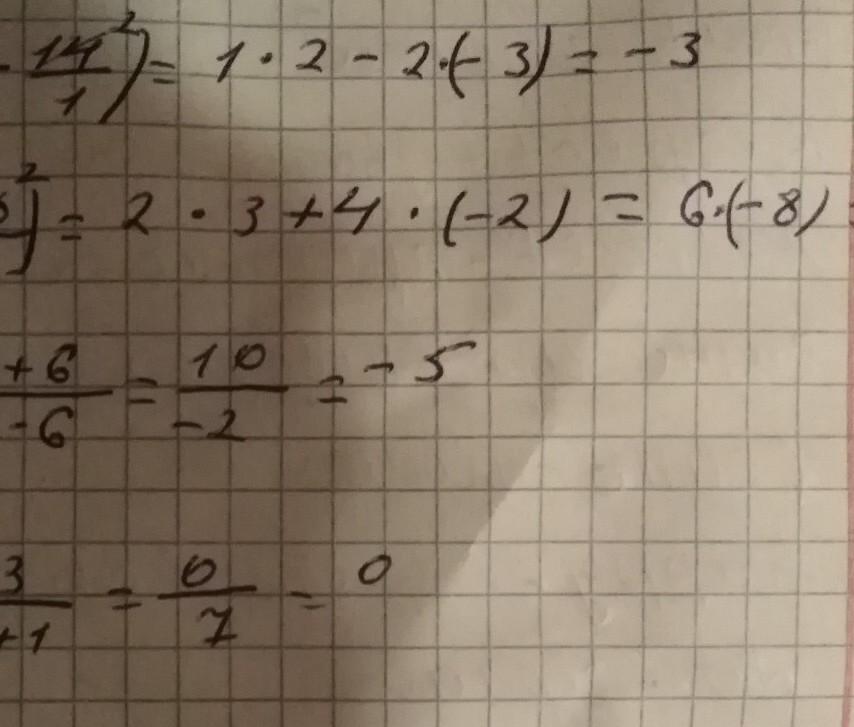 - 14²/1) = 1 · 2 - 2·(-3) = -3
²) = 2 · 3 + 4 · (-2) = 6·(-8) =
+6/-6 = 10/-2 = -5
3/+1 = 0/7 = 0